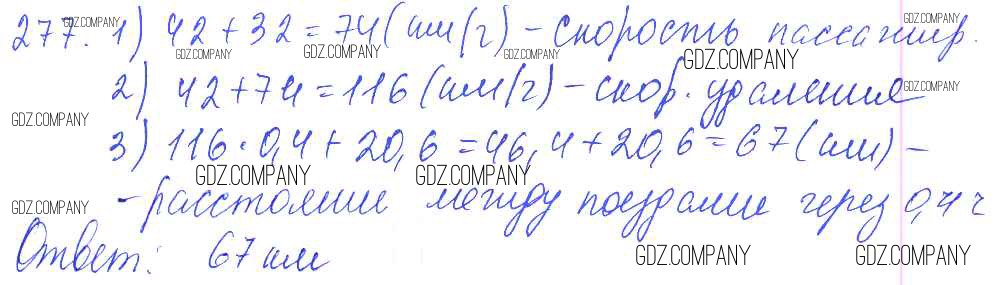 277. 1) 42 + 32 = 74 (км/г) – скорость пассажир.
2) 42 + 74 = 116 (км/г) – скор. удаления
3) 116 · 0,4 + 20,6 = 46,4 + 20,6 = 67 (км) –
– расстояние между поездами через 0,4 ч
Ответ: 67 км
GDZ.COMPANY
GDZ.COMPANY
GDZ.COMPANY
GDZ.COMPANY
GDZ.COMPANY
GDZ.COMPANY
GDZ.COMPANY
GDZ.COMPANY
GDZ.COMPANY
GDZ.COMPANY
GDZ.COMPANY
GDZ.COMPANY
GDZ.COMPANY
GDZ.COMPANY